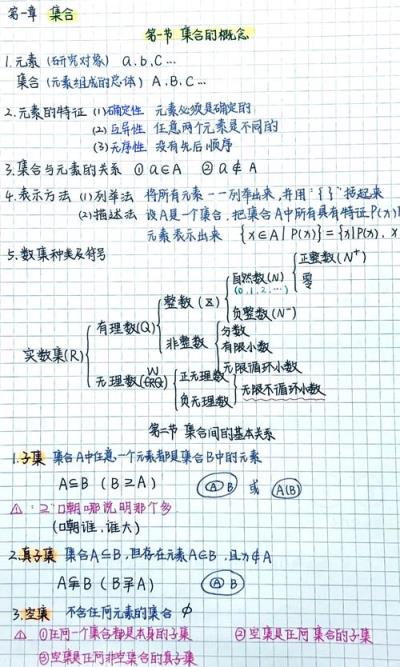 第一章 集合
第一节 集合的概念
1.元素 (研究对象) a.b.C…
集合 (元素组成的总体) A.B.C…
2.元素的特征 (1)确定性 元素必须是确定的
(2)互异性 任意两个元素是不同的
(3)无序性 没有先后顺序
3.集合与元素的关系 ① a∈A ② a∉A
4.表示方法 (1)列举法 将所有元素一一列举出来,并用“{ }”括起来
(2)描述法 设A是一个集合,把集合A中所有具有特征P(x)
元素表示出来 {x∈A|P(x)}={x|P(x), x
5.数集种类及符号
正整数(N⁺)
自然数(N)
(0,1,2,…)
零
整数(Z)
负整数(N⁻)
有理数(Q)
分数
非整数
有限小数
实数集(R)
无限循环小数
无理数
正无理数
无限不循环小数
负无理数
第二节 集合间的基本关系
1.子集 集合A中任意一个元素都是集合B中的元素
A⊆B (B⊇A) A B 或 A(B)
⚠ : 口朝哪说明那个多
(口朝谁,谁大)
2.真子集 集合A⊆B,但存在元素 B,且 ∉A
A⫋B (B⫌A) A B
3.空集 不含任何元素的集合 ∅
⚠ ①任何一个集合都是本身的子集 ②空集是任何集合的子集
③空集是任何非空集合的真子集